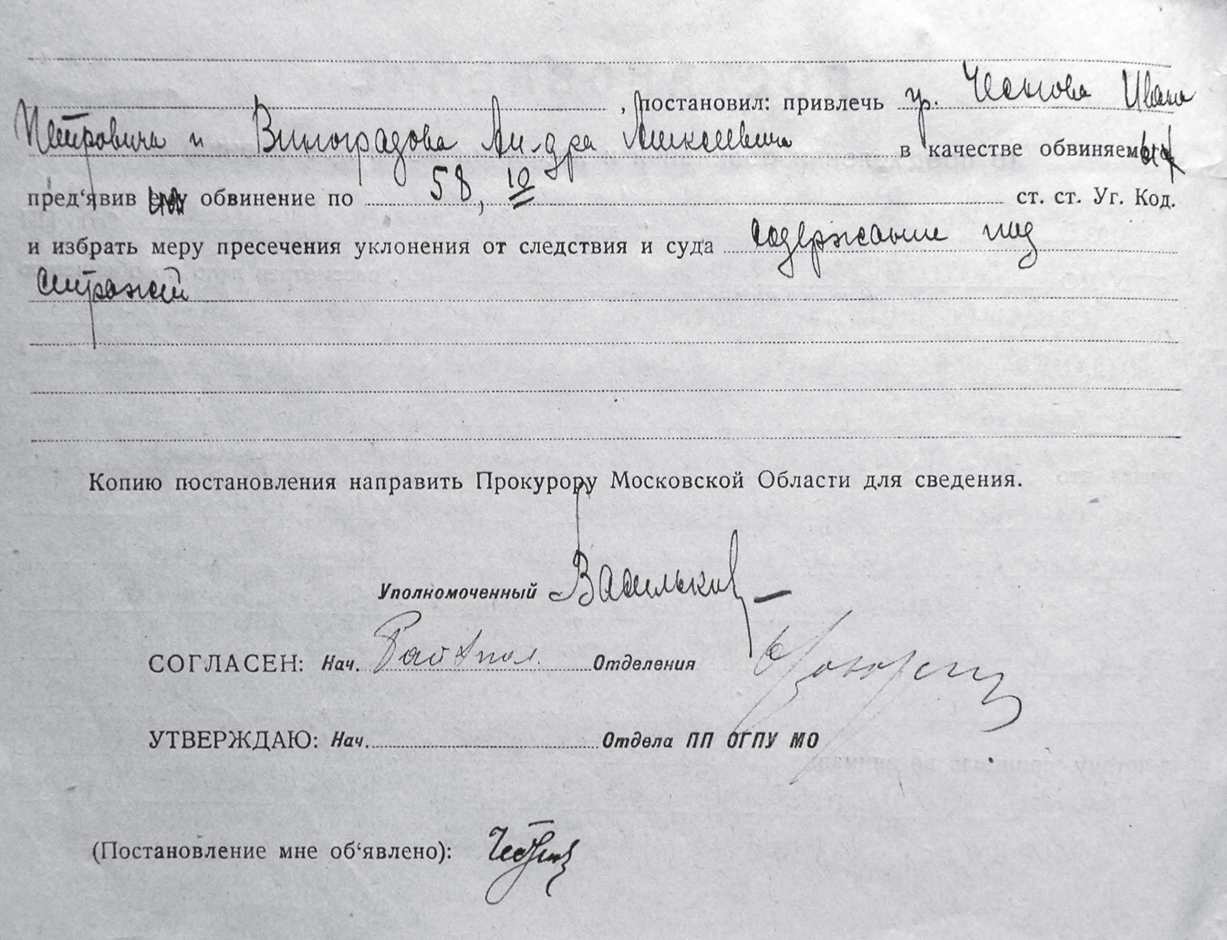 , постановил: привлечь гр. Чеснова Ивана
Петровича и Виноградова Ал-дра Алексеевича в качестве обвиняемых
пред‘явив обвинение по 58, 10 ст. ст. Уг. Код.
и избрать меру пресечения уклонения от следствия и суда содержание под
стражей
Копию постановления направить Прокурору Московской Области для сведения.
Уполномоченный Васильков
СОГЛАСЕН: Нач. Отделения
УТВЕРЖДАЮ: Нач. Отдела ПП ОГПУ МО
(Постановление мне об‘явлено):